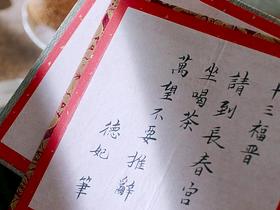 十三福晋
請到長春宮
坐喝茶
萬望不要推辭
德妃 筆